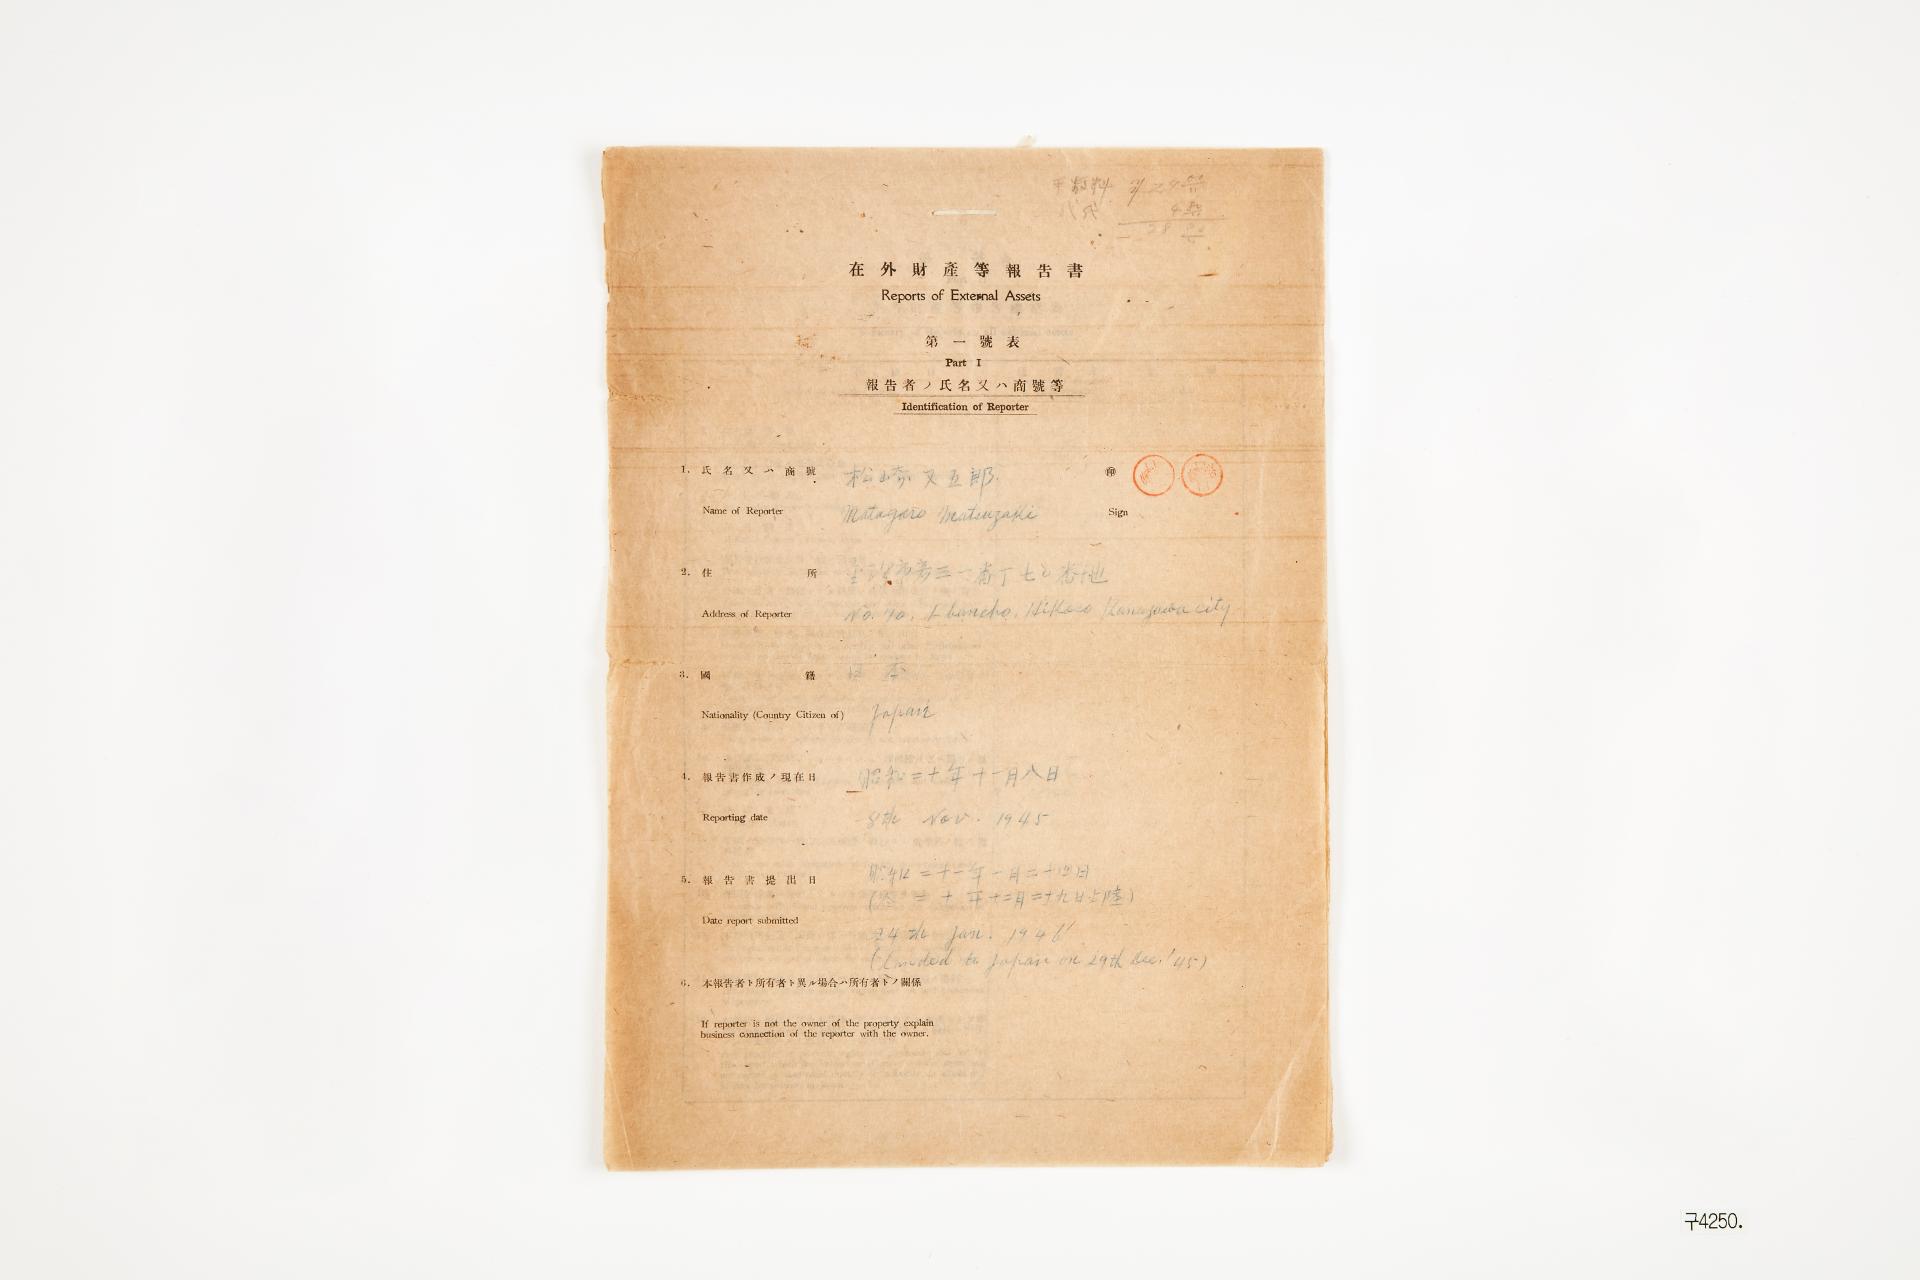 手數料
在外財產等報告書
Reports of External Assets
第一號表
Part I
報告者ノ氏名又ハ商號等
Identification of Reporter
1. 氏名又ハ商號 松崎又五郎. ㊞
Name of Reporter Matagoro Matsuzaki Sign
2. 住所 一番丁七〇番地
Address of Reporter No. 70, 1 bancho, Hikoso Kanazawa city
3. 國籍 日本
Nationality (Country Citizen of) Japan
4. 報告書作成ノ現在日 昭和二十年十一月八日
Reporting date 8th Nov. 1945
5. 報告書提出日 昭和二十一年一月二十四日
二十年十二月二十九日上陸)
Date report submitted
24th Jan. 1946
(Landed to Japan on 29th Dec. '45)
6. 本報告者ト所有者ト異ル場合ハ所有者トノ關係
If reporter is not the owner of the property explain
business connection of the reporter with the owner.
구4250.